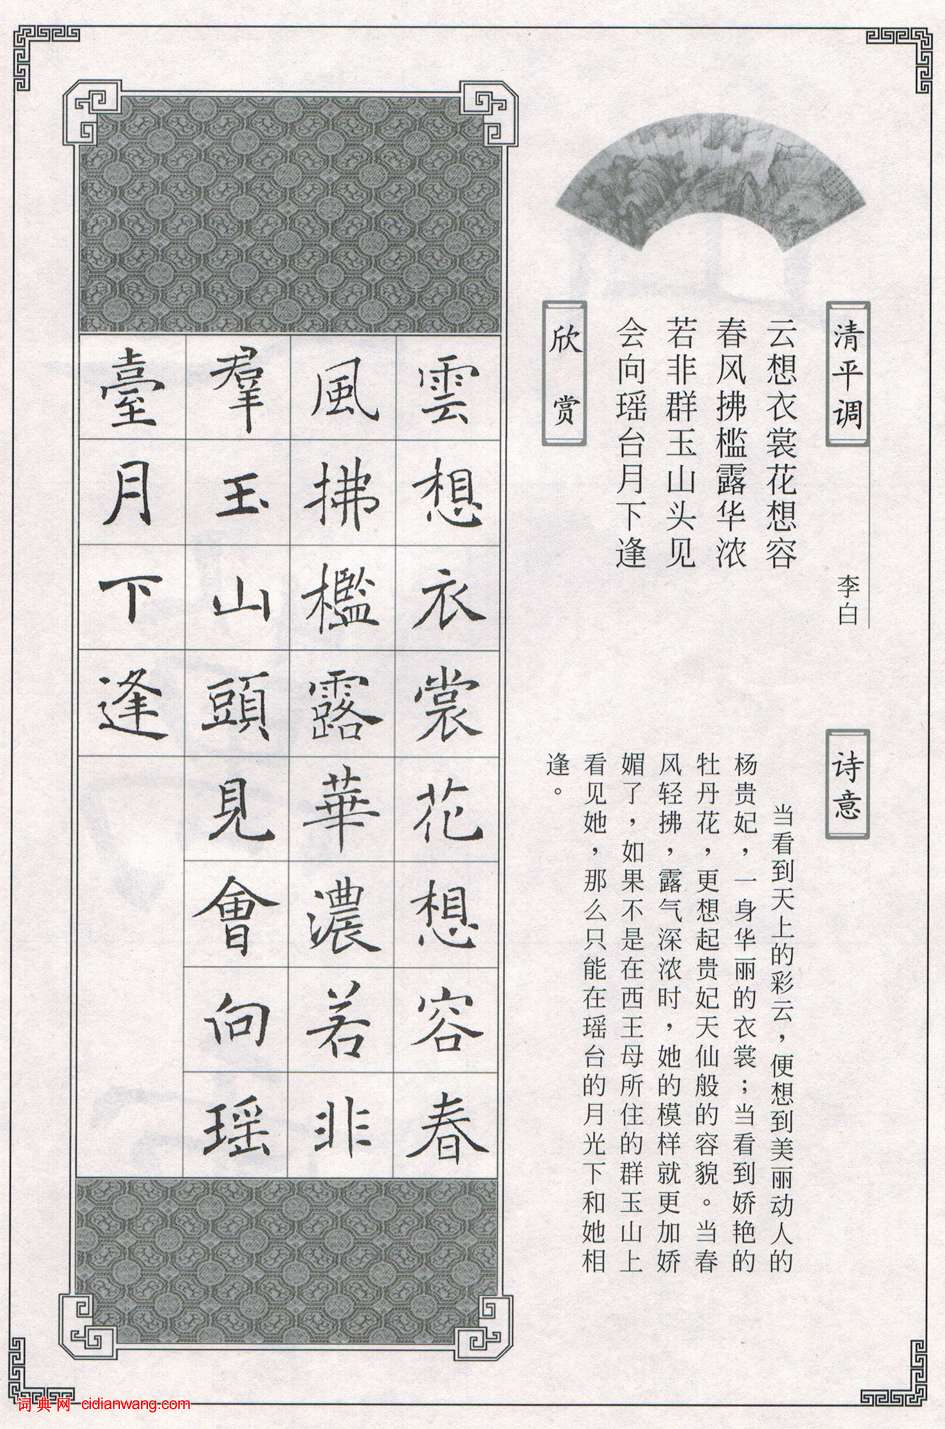 清平调
李白
云想衣裳花想容
春风拂槛露华浓
若非群玉山头见
会向瑶台月下逢
诗意
当看到天上的彩云，便想到美丽动人的
杨贵妃，一身华丽的衣裳；当看到娇艳的
牡丹花，更想起贵妃天仙般的容貌。当春
风轻拂，露气深浓时，她的模样就更加娇
媚了，如果不是在西王母所住的群玉山上
看见她，那么只能在瑶台的月光下和她相
逢。
欣赏
雲想衣裳花想容春
風拂檻露華濃若非
羣玉山頭見會向瑶
臺月下逢
词典网 cidianwang.com